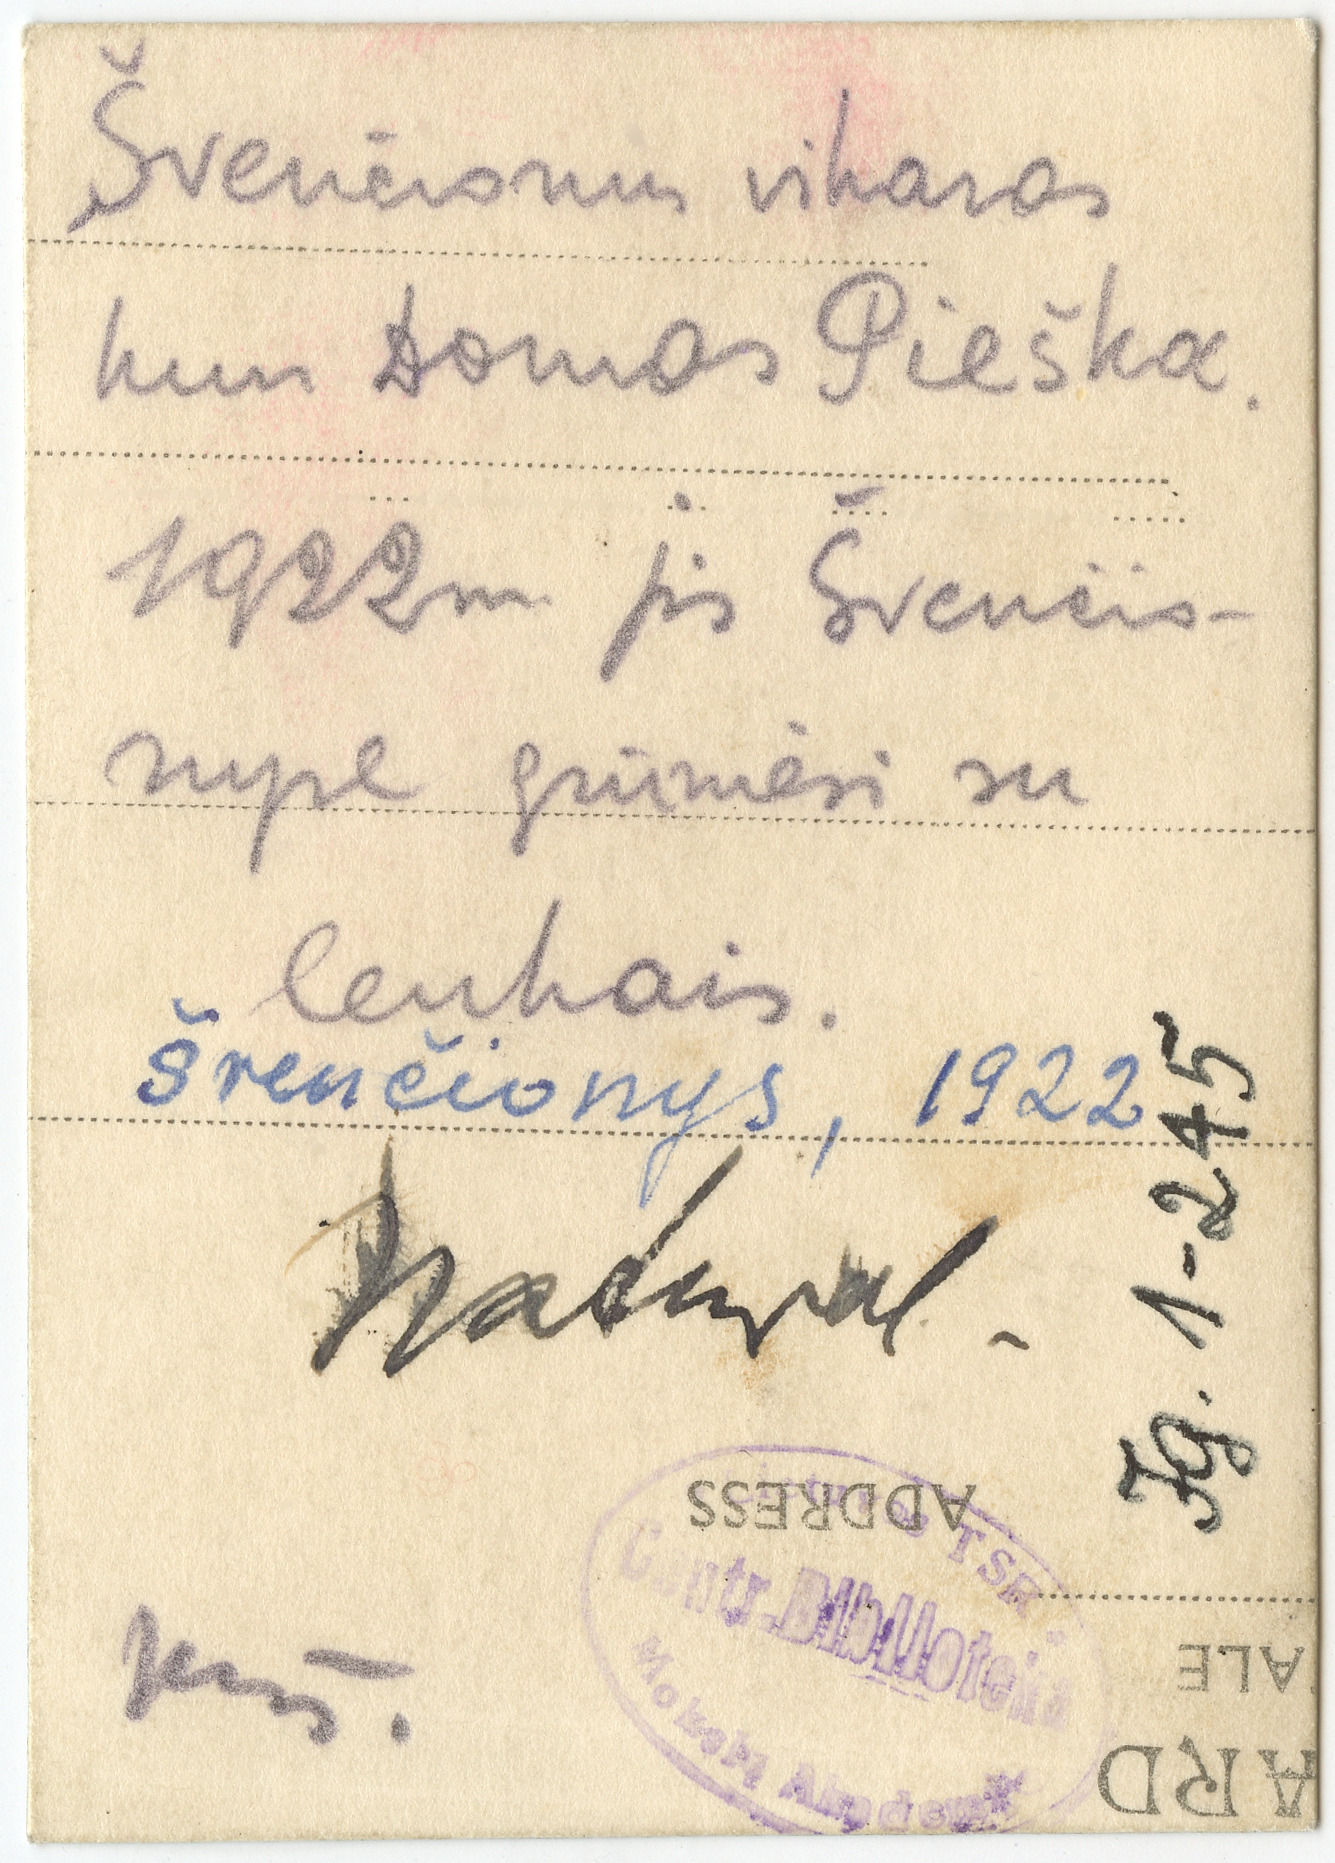 Švenčionių vikaras
kun Domas Pieška.
1922 m jis Švenčio-
nyse grūmėsi su
lenkais.
Švenčionys, 1922
Fg. 1-245
ADDRESS
TSR
Centr. Biblioteka
Mokslų Akadem
ALE
ARD